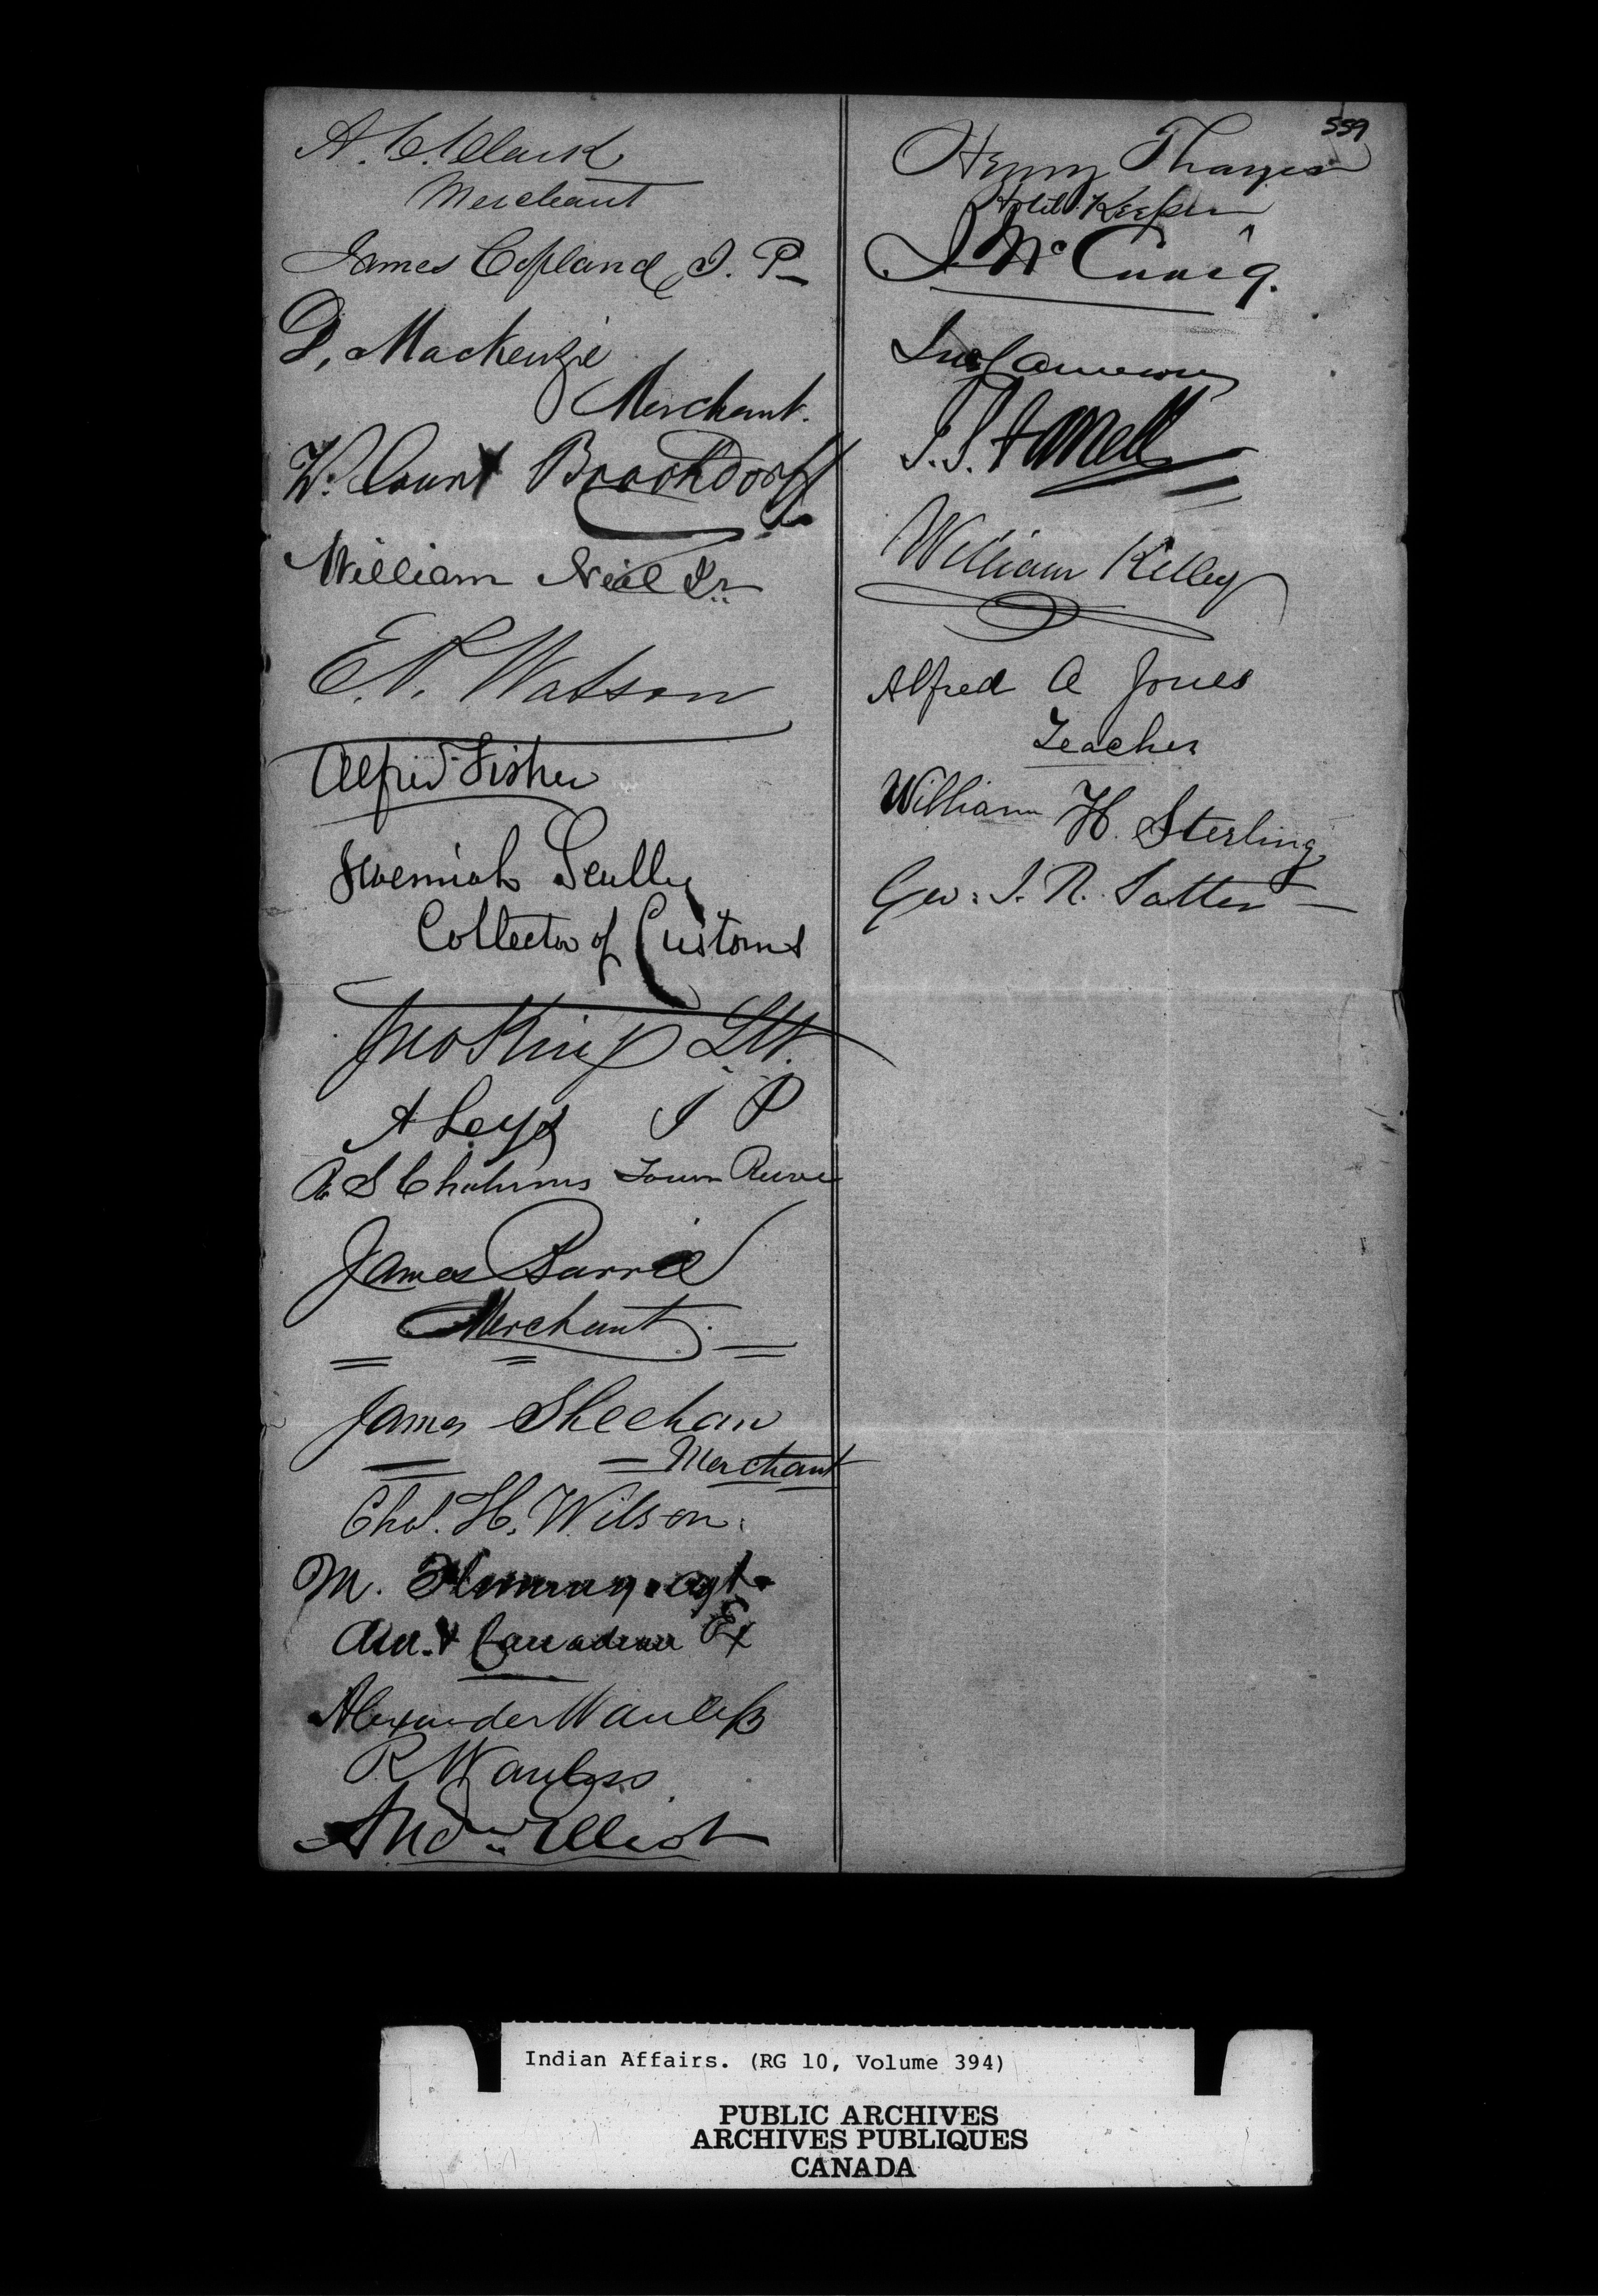 559
A. C. Clark
Merchant
James Copland, J. P.
D. Mackenzie
Merchant.
W. Count Brockdorff
William Neil Jr.
E. P. Watson
Alfred Fisher
Jeremiah Scully
Collector of Customs
Jno King
A Leys J P
R S Chalmers Town Reeve
James Barrie
Merchant.
James Sheehan
Merchant
Chas. H. Wilson.
M. Fleming. Agt.
Am. & Canadian Ex
Alexander Wanless
R Wanless
Andw. Elliot
Henry Thayer
Hotel Keeper
J. McCraig.
Jno Cameron
William Kelley
Alfred A Jones
Teacher
William H. Sterling
Geo: J. R. Salter
Indian Affairs. (RG 10, Volume 394)
PUBLIC ARCHIVES
ARCHIVES PUBLIQUES
CANADA